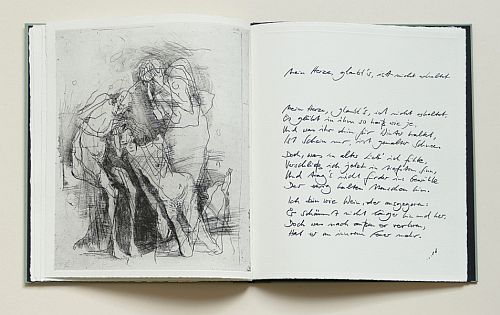 Mein Herze, glaubt's, ist nicht erkaltet
Mein Herze, glaubt's, ist nicht erkaltet,
Es glüht in ihm so heiß wie je,
Und was ihr drin für Winter haltet,
Ist Schein nur, ist gemalter Schnee.
Doch, was in alter Lieb' ich fühle,
Verschließ ich jetzt in tiefstem Sinn,
Und trag's nicht fürder ins Gewühle
Der ewig kalten Menschen hin.
Ich bin wie Wein, der ausgegoren:
Er schäumt nicht länger hin und her,
Doch was nach außen er verloren,
Hat er an innrem Feuer mehr.